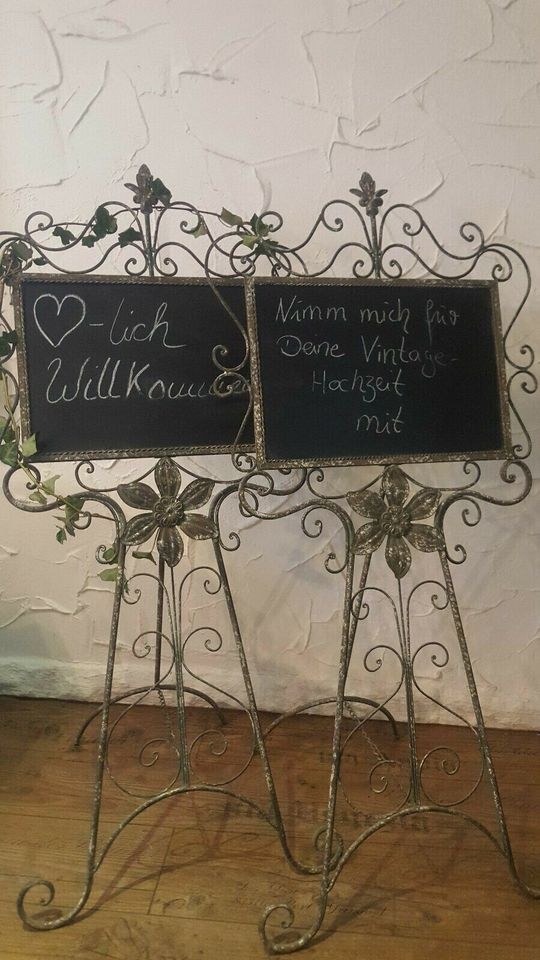 ♡-lich
Willkommen
Nimm mich für
Deine Vintage-
Hochzeit
mit